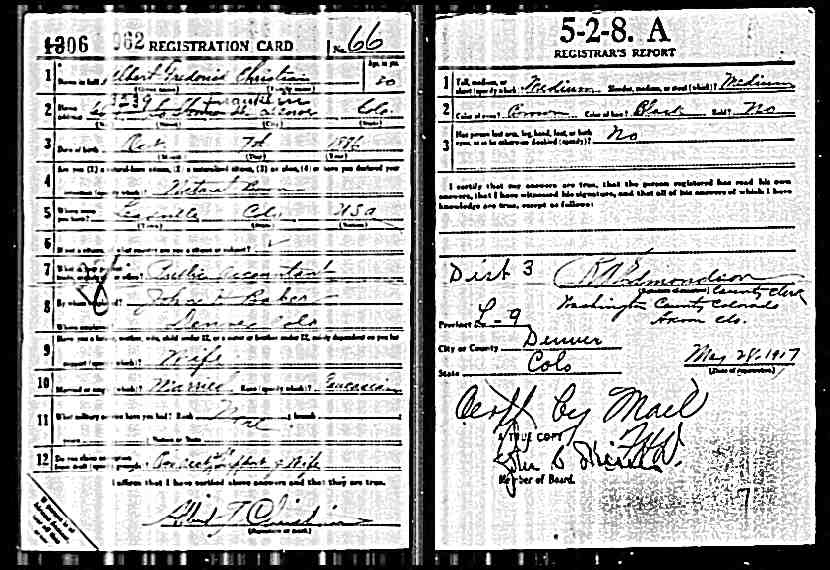 1306 962 REGISTRATION CARD No. 66
1 Name in full Albert Frederick Christian Age, in yrs. 30
(Given name) (Family name)
2 Home address 3239 Franklin St Denver Colo.
(No.) (Street) (City) (State)
3 Date of birth Oct 7th 1886
(Month) (Day) (Year)
Are you (1) a natural-born citizen, (2) a naturalized citizen, (3) an alien, (4) or have you declared your
4 intention (specify which)? Natural Born
5 Where were you born? Leadville Colo USA
(Town) (State) (Nation)
6 If not a citizen, of what country are you a citizen or subject?
7 What is your present trade, occupation, or office? Public Accountant
8 By whom employed? John J Baker
Where employed? Denver Colo
Have you a father, mother, wife, child under 12, or a sister or brother under 12, solely dependent on you for
9 support (specify which)? Wife
10 Married or single (which)? Married Race (specify which)? Caucasian
11 What military service have you had? Rank None branch
years Nation or State
12 Do you claim exemption from draft (specify grounds)? Support of Wife
I affirm that I have verified above answers and that they are true.
Albert F Christian
(Signature or mark)
5-2-8. A
REGISTRAR'S REPORT
1 Tall, medium, or short (specify which)? Medium Slender, medium, or stout (which)? Medium
2 Color of eyes? Brown Color of hair? Black Bald? No
3 Has person lost arm, leg, hand, foot, or both eyes, or is he otherwise disabled (specify)? No
I certify that my answers are true, that the person registered has read his own
answers, that I have witnessed his signature, and that all of his answers of which I have
knowledge are true, except as follows:
Dist 3 Edmondson
(Signature of registrar) County Clerk
Washington County Colorado
Akron Colo.
Precinct No. L-9
City or County Denver
State Colo May 28, 1917
(Date of registration)
by Mail
A TRUE COPY
John
Member of Board.